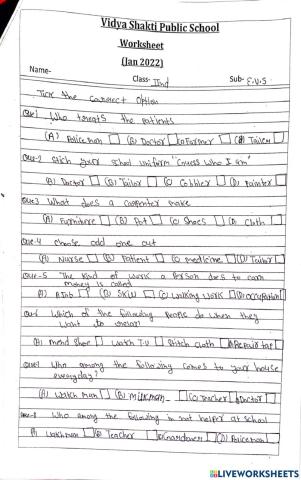 Vidya Shakti Public School
Worksheet
(Jan 2022)
Name-
Class- IInd Sub- E.V.S
Tick the correct option
Que-1 Who treats the patients
(A) Police man (B) Doctor (C) Farmer (D) Tailor
Que-2 stich your school uniform "Guess Who I am"
(A) Doctor (B) Tailor (C) Cobbler (D) Painter
Que-3 What does a carpenter make
(A) Furniture (B) Pot (C) Shoes (D) Cloth
Que-4 choose odd one out
(A) Nurse (B) Patient (C) medicine (D) Tailor
Que-5 The kind of work a person does to earn
money is called
(A) A Job (B) Skill (C) walking work (D) occupation
Que-6 Which of the following people do when they
want to
(A) mend shoe watch T.V stitch cloth Repair tap
Que-7 Who among the following comes to your house
everyday?
(A) watch man (B) milkman- (C) Teacher Doctor
Que-8 Who among the following is not helper at school
(A) watchman (B) Teacher (C) Gardener (D) Policeman
LIVEWORKSHEETS